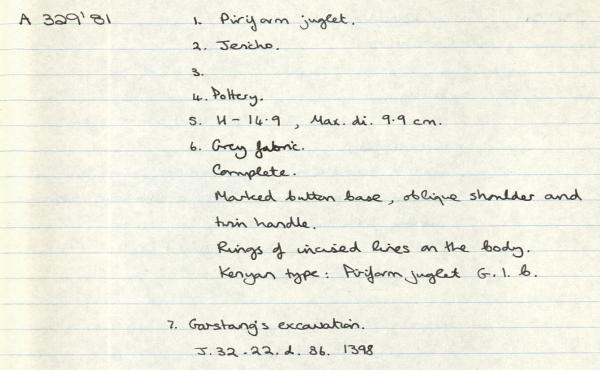 A 329'81
1. Piriform juglet.
2. Jericho.
3.
4. Pottery.
5. H - 14.9 , Max. di. 9.9 cm.
6. Grey fabric.
Complete.
Marked button base, oblique shoulder and
twin handle.
Rings of incised lines on the body.
Kenyan type: Piriform juglet G. 1. b.
7. Garstang's excavation.
J. 32. 22. d. 86. 1398